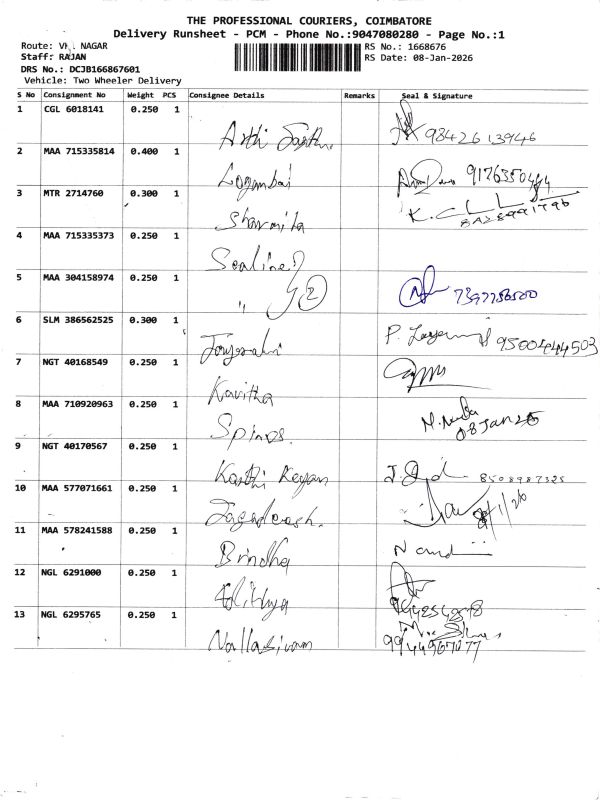 THE PROFESSIONAL COURIERS, COIMBATORE
Delivery Runsheet - PCM - Phone No.:9047080280 - Page No.:1
Route: NAGAR
Staff: RAJAN
DRS No.: DCJB166867601
Vehicle: Two Wheeler Delivery
RS No.: 1668676
RS Date: 08-Jan-2026
S No Consignment No Weight PCS Consignee Details Remarks Seal & Signature
1 CGL 6018141 0.250 1
Arthi 9842613946
2 MAA 715335814 0.400 1
Logambal 9176350444
3 MTR 2714760 0.300 1
Sharmila
4 MAA 715335373 0.250 1
Sealine
5 MAA 304158974 0.250 1
" 2
6 SLM 386562525 0.300 1
P. 9500444503
7 NGT 40168549 0.250 1
Kavitha
8 MAA 710920963 0.250 1
08 Jan 26
9 NGT 40170567 0.250 1
Karthi Keyan 8508987325
10 MAA 577071661 0.250 1
Jagadeesh.
11 MAA 578241588 0.250 1
Brindha
12 NGL 6291000 0.250 1
13 NGL 6295765 0.250 1
Nallasivam